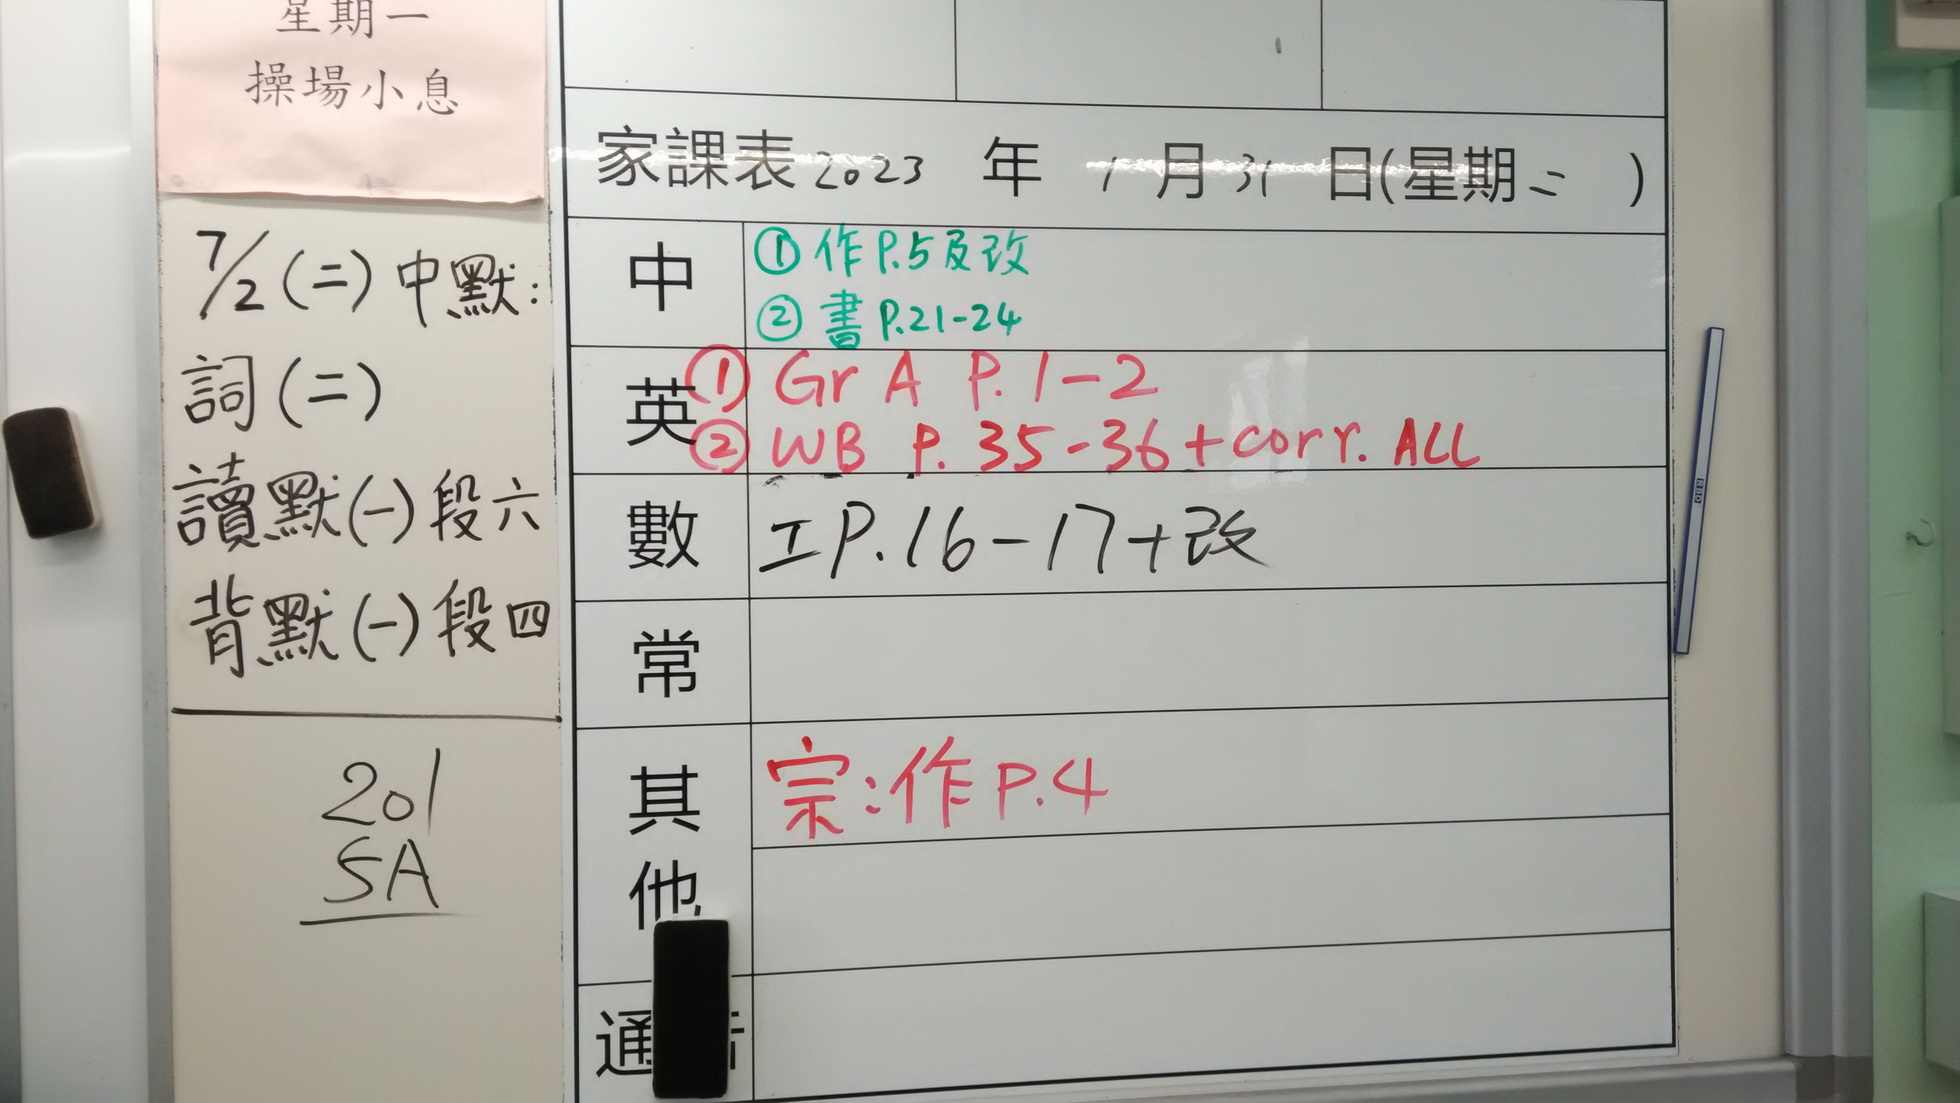 星期一
操場小息
7/2 (二) 中默:
詞(二)
讀默(一)段六
背默(一)段四
201
5A
家課表 2023 年 1 月 31 日(星期二 )
中
①作P.5及改
②書P.21-24
英
① Gr A P. 1-2
② WB P. 35-36 + corr. ALL
數
工P.16-17+改
常
其他
宗:作P.4
通